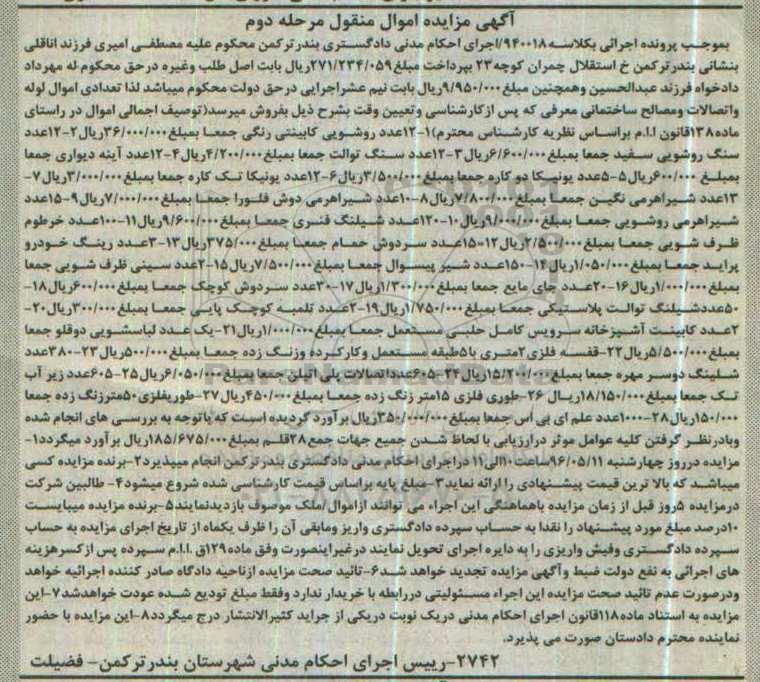 آگهی مزایده اموال منقول مرحله دوم
بموجب پرونده اجرائی بکلاسه ۹۴۰۰۱۸/اجرای احکام مدنی دادگستری بندرترکمن محکوم علیه مصطفی امیری فرزند اناقلی
بنشانی بندرترکمن خ استقلال چمران کوچه۲۳ بپرداخت مبلغ ۲۷۱/۲۳۴/۰۵۹ریال بابت اصل طلب وغیره درحق محکوم له مهرداد
دادخواه فرزند عبدالحسین وهمچنین مبلغ ۹/۹۵۰/۰۰۰ریال بابت نیم عشراجرایی درحق دولت محکوم میباشد لذا تعدادی اموال لوله
واتصالات ومصالح ساختمانی معرفی که پس ازکارشناسی وتعیین وقت بشرح ذیل بفروش میرسد(توصیف اجمالی اموال در راستای
ماده۱۳۸قانون ا.ا.م براساس نظریه کارشناس محترم)۱-۱۲عدد روشویی کابینتی رنگی جمعا بمبلغ۳۶/۰۰۰/۰۰۰ریال۲-۱۲عدد
سنگ روشویی سفید جمعا بمبلغ۶/۶۰۰/۰۰۰ریال۳-۱۲عدد سنگ توالت جمعا بمبلغ۴/۲۰۰/۰۰۰ریال۴-۱۲عدد آینه دیواری جمعا
بمبلغ ۶۰۰/۰۰۰ریال۵-۵عدد یونیکا دو کاره جمعا بمبلغ۳/۵۰۰/۰۰۰ریال۶-۱۲عدد یونیکا تک کاره جمعا بمبلغ۳/۰۰۰/۰۰۰ریال۷-
۱۳عدد شیراهرمی نگین جمعا بمبلغ۷/۸۰۰/۰۰۰ریال۸-۱۰عدد شیراهرمی دوش فلورا جمعا بمبلغ۷/۰۰۰/۰۰۰ریال۹-۱۵عدد
شیراهرمی روشویی جمعا بمبلغ۹/۰۰۰/۰۰۰ریال۱۰-۱۲۰عدد شیلنگ فنری جمعا بمبلغ۹/۶۰۰/۰۰۰ریال۱۱-۱۰۰عدد خرطوم
ظرف شویی جمعا بمبلغ۲/۵۰۰/۰۰۰ریال۱۲-۱۵عدد سردوش حمام جمعا بمبلغ۳۷۵/۰۰۰ریال۱۳-۳عدد رینگ خودرو
پراید جمعا بمبلغ۱/۰۵۰/۰۰۰ریال۱۴-۱۵عدد شیر پیسوال جمعا بمبلغ۷/۵۰۰/۰۰۰ریال۱۵-۲عدد سینی ظرف شویی جمعا
بمبلغ۱/۰۰۰/۰۰۰ریال۱۶-۲۰عدد جای مایع جمعا بمبلغ۱/۳۰۰/۰۰۰ریال۱۷-۳۰عدد سردوش کوچک جمعا بمبلغ۶۰۰/۰۰۰ریال۱۸-
۵۰عددشیلنگ توالت پلاستیکی جمعا بمبلغ۱/۷۵۰/۰۰۰ریال۱۹-۲عدد تلمبه کوچک پایی جمعا بمبلغ۳۰۰/۰۰۰ریال۲۰-
۲عدد کابینت آشپزخانه سرویس کامل حلبی مستعمل جمعا بمبلغ۱/۰۰۰/۰۰۰ریال۲۱-یک عدد لباسشویی دوقلو جمعا
بمبلغ۵/۵۰۰/۰۰۰ریال۲۲-قفسه فلزی۲متری با۵طبقه مستعمل وکارکرده وزنگ زده جمعا بمبلغ۵۰۰/۰۰۰ریال۲۳-۳۸۰عدد
شلینگ دوسر مهره جمعا بمبلغ۱۵/۲۰۰/۰۰۰ریال۲۴-۶۰۵عدداتصالات پلی اتیلن جمعا بمبلغ۶/۰۵۰/۰۰۰ریال۲۵-۶۰۵عدد زیر آب
تک جمعا بمبلغ۱۸/۱۵۰/۰۰۰ریال ۲۶-طوری فلزی ۱۵متر زنگ زده جمعا بمبلغ۴۵۰/۰۰۰ریال۲۷-طوریفلزی۵۰مترزنگ زده جمعا
۱۵۰/۰۰۰ریال۲۸-۱۰۰۰عدد علم ای بی اس جمعا بمبلغ۳۵۰/۰۰۰/۰۰۰ریال برآورد گردیده است که باتوجه به بررسی های انجام شده
وبادرنظر گرفتن کلیه عوامل موثر درارزیابی با لحاظ شدن جمیع جهات جمع۲۸قلم بمبلغ۱۸۵/۶۷۵/۰۰۰ریال برآورد میگردد۱-
مزایده درروز چهارشنبه ۹۶/۰۵/۱۱ساعت۱۰الی۱۱ دراجرای احکام مدنی دادگستری بندرترکمن انجام میپذیرد۲-برنده مزایده کسی
میباشد که بالا ترین قیمت پیشنهادی را ارائه نماید۳-مبلغ پایه براساس قیمت کارشناسی شده شروع میشود۴- طالبین شرکت
درمزایده ۵روز قبل از زمان مزایده باهماهنگی این اجراء می توانند ازاموال/ملک موصوف بازدیدنمایند۵-برنده مزایده میبایست
۱۰درصد مبلغ مورد پیشنهاد را نقدا به حساب سپرده دادگستری واریز ومابقی آن را ظرف یکماه از تاریخ اجرای مزایده به حساب
سپرده دادگستری وفیش واریزی را به دایره اجرای تحویل نمایند درغیراینصورت وفق ماده۱۲۹ق .ا.ا.م سپرده پس ازکسرهزینه
های اجرائی به نفع دولت ضبط وآگهی مزایده تجدید خواهد شد۶-تائید صحت مزایده ازناحیه دادگاه صادر کننده اجرائیه خواهد
ودرصورت عدم تائید صحت مزایده این اجراء مسئولیتی دررابطه با خریدار ندارد وفقط مبلغ تودیع شده عودت خواهدشد۷-این
مزایده به استناد ماده۱۱۸قانون اجرای احکام مدنی دریک نوبت دریکی از جراید کثیرالانتشار درج میگردد۸-این مزایده با حضور
نماینده محترم دادستان صورت می پذیرد.
۲۷۴۲-رییس اجرای احکام مدنی شهرستان بندرترکمن- فضیلت